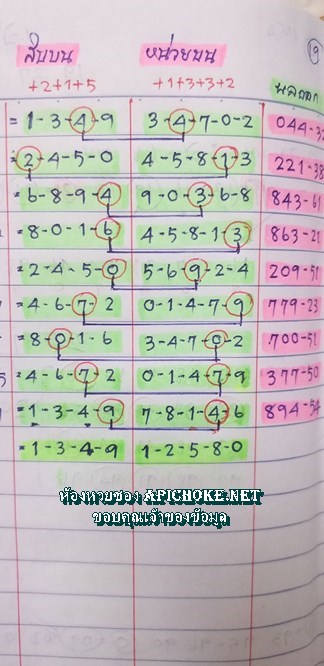 สิบบน หน่วยบน 19
+2+1+5 +1+3+3+2 ผลออก
=1-3-4-9 3-4-7-0-2 044-3
=2-4-5-0 4-5-8-1-3 221-38
=6-8-9-4 9-0-3-6-8 843-61
=8-0-1-6 4-5-8-1-3 863-21
=2-4-5-0 5-6-9-2-4 209-51
=4-6-7-2 0-1-4-7-9 779-23
=8-0-1-6 3-4-7-0-2 700-51
=4-6-7-2 0-1-4-7-9 377-50
=1-3-4-9 7-8-1-4-6 894-54
=1-3-4-9 1-2-5-8-0
ห้องหวยซอง APICHOKE.NET
ขอบคุณเจ้าของข้อมูล